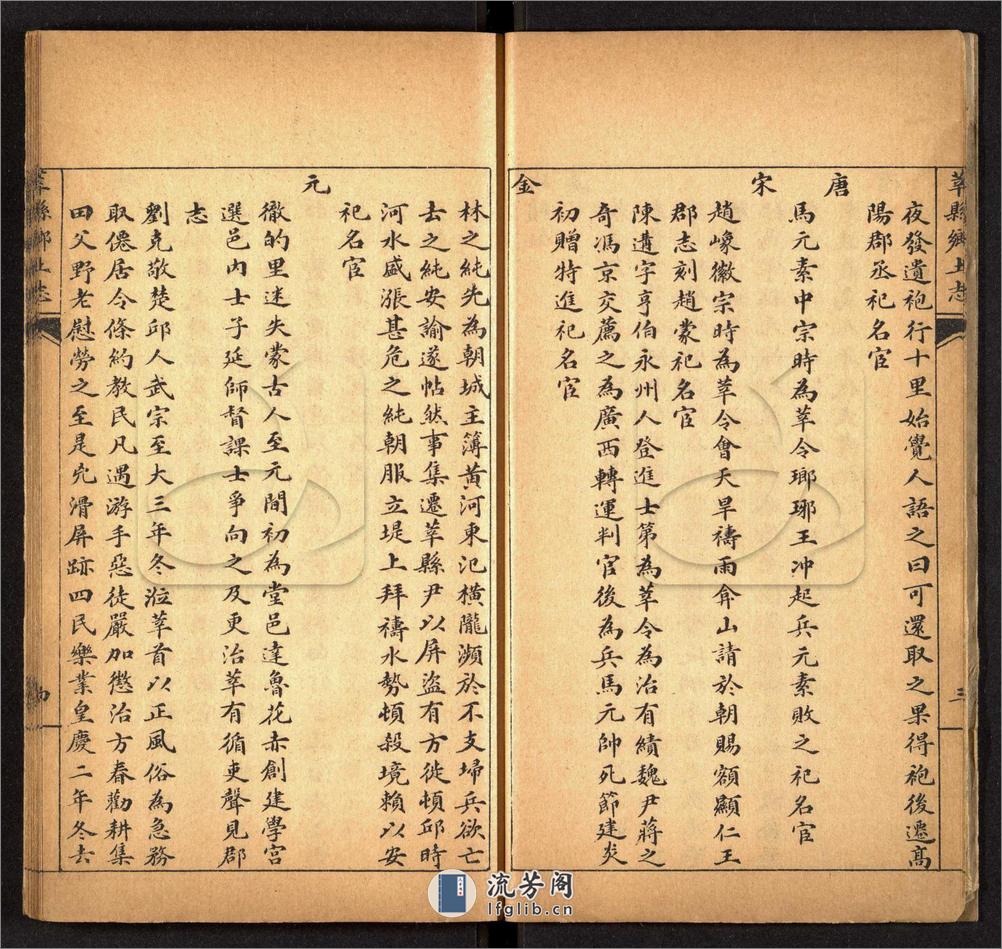 莘縣鄉土志
三
夜發遺袍行十里始覺人語之曰可還取之果得袍後遷髙
陽郡丞祀名宦
唐
馬元素中宗時為莘令瑯琊王冲起兵元素敗之祀名宦
宋
趙㠔徽宗時為莘令會天旱禱雨弇山請於朝賜額顯仁王
郡志刻趙蒙祀名宦
陳遘字亨伯永州人登進士第為莘令為治有績魏尹蔣之
奇馮京交薦之為廣西轉運判官後為兵馬元帥死節建炎
初贈特進祀名宦
金
林之純先為朝城主簿黄河東氾橫隴瀕於不支埽兵欲亡
士之純安諭遂帖然事集遷莘縣尹以屏盜有方徙頓邱時
河水盛漲甚危之純朝服立堤上拜禱水勢頓殺境賴以安
祀名宦
元
徹的里迷失蒙古人至元間初為堂邑達魯花赤創建學宮
選邑内士子延師督課士爭向之及更治莘有循吏聲見郡
志
劉克敬楚邱人武宗至大三年冬涖莘首以正風俗為急務
取僊居令條約教民凡遇游手惡徒嚴加懲治方春勸耕集
田父野老慰勞之至是兇滑屏跡四民樂業皇慶二年冬去
莘縣鄉土志
流芳阁
lfglib.cn